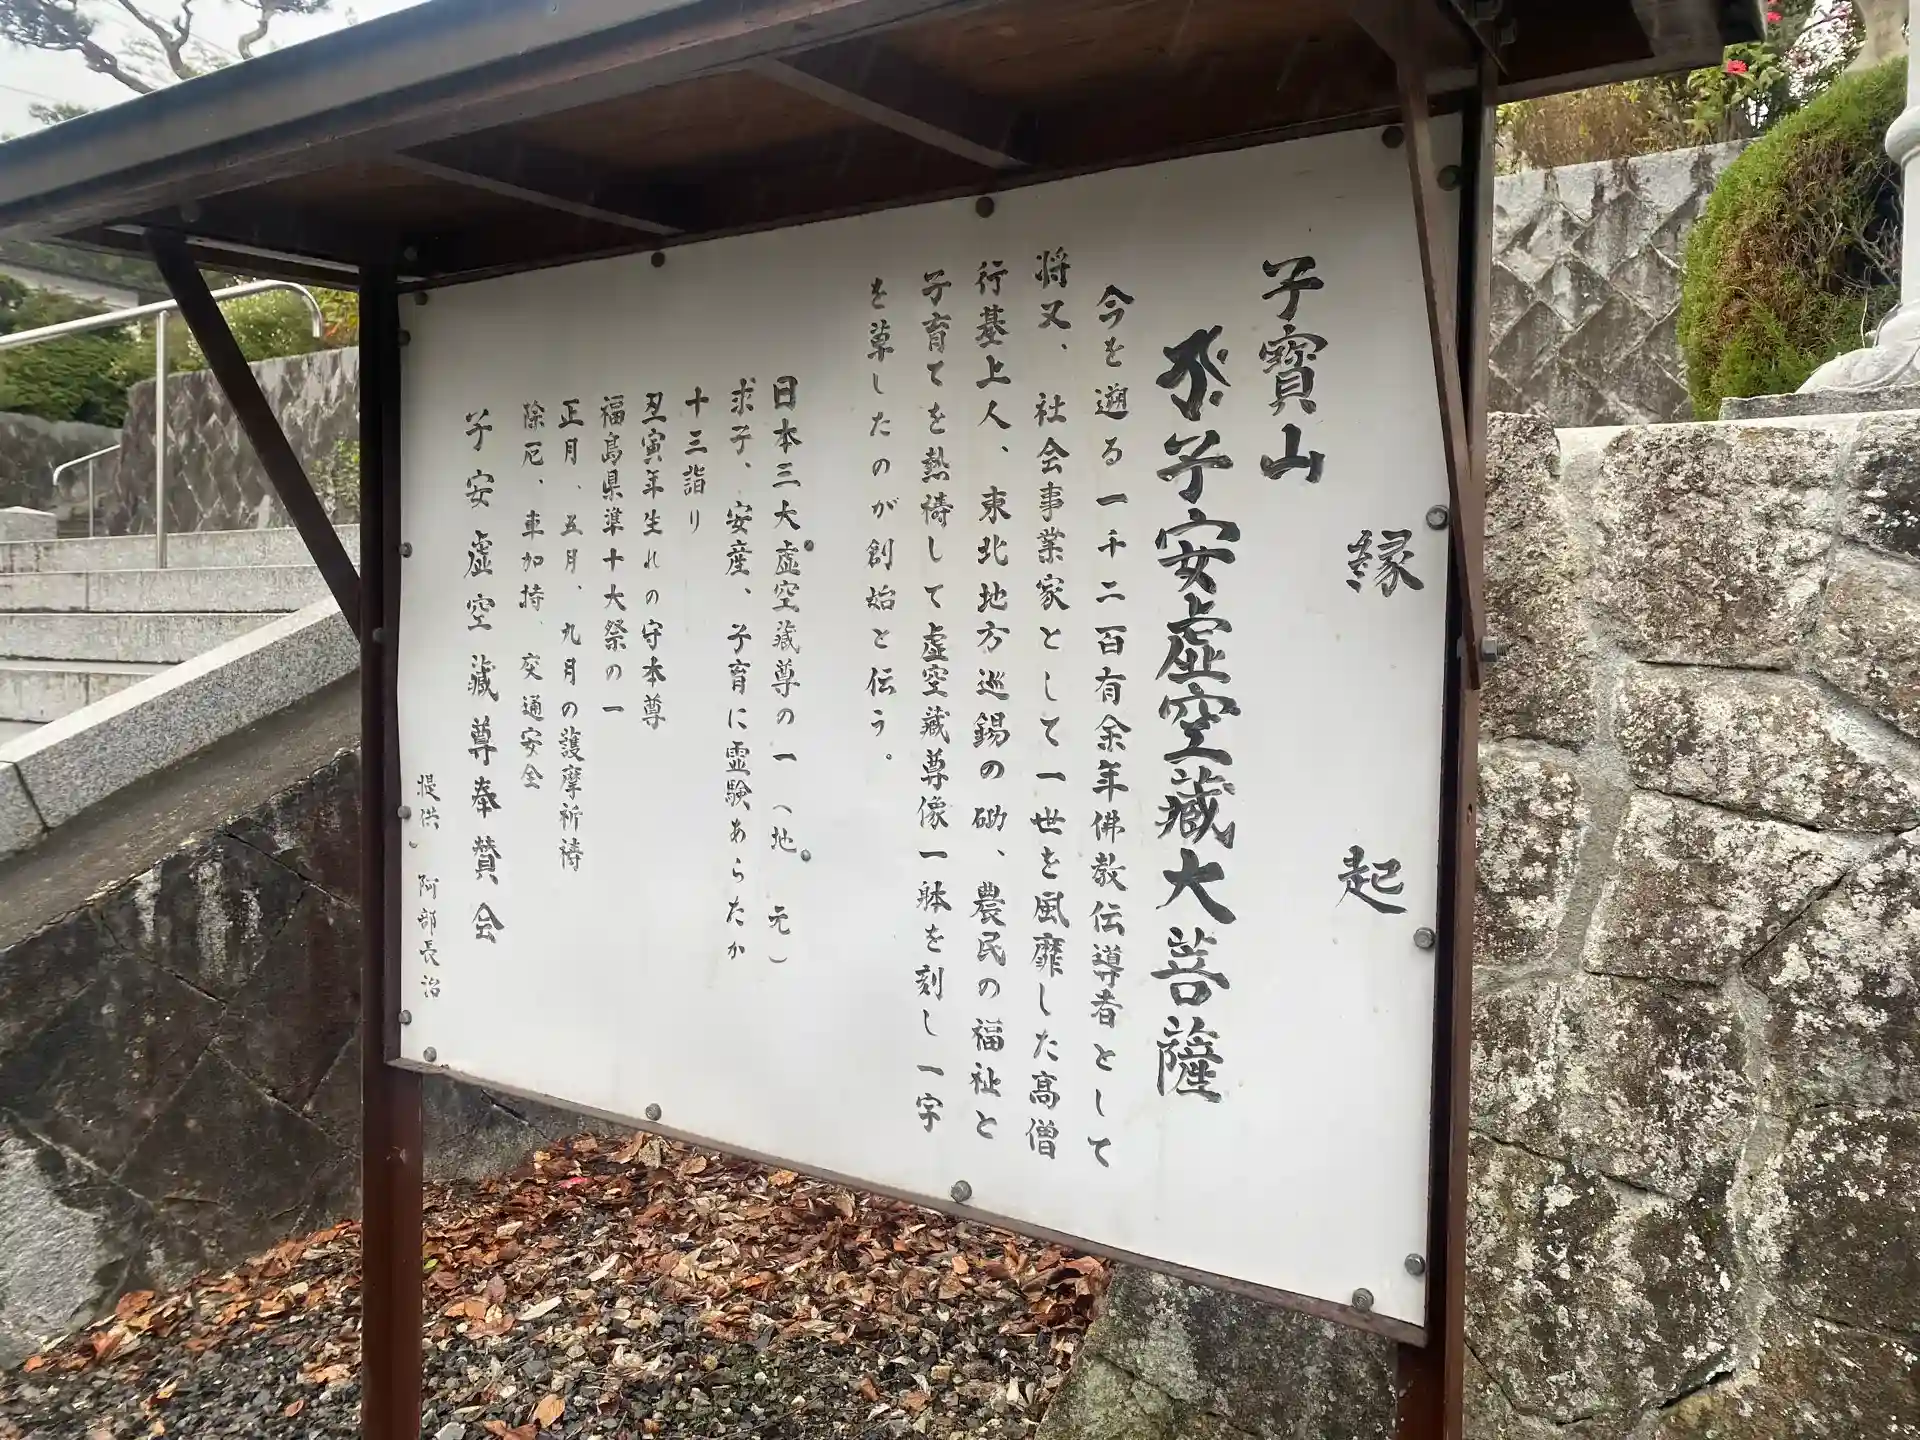 縁起
子寳山
子安虚空蔵大菩薩
今を遡る一千二百有余年佛教伝導者として
将又、社会事業家として一世を風靡した高僧
行基上人、東北地方巡錫の砌、農民の福祉と
子育てを熱祷して虚空蔵尊像一躰を刻し一宇
を草したのが創始と伝う。
日本三大虚空蔵尊の一（地元）
求子、安産、子育に霊験あらたか
十三詣り
丑寅年生れの守本尊
福島県準十大祭の一
正月、五月、九月の護摩祈祷
除厄、車加持、交通安全
子安虚空蔵尊奉賛会
提供 阿部長治